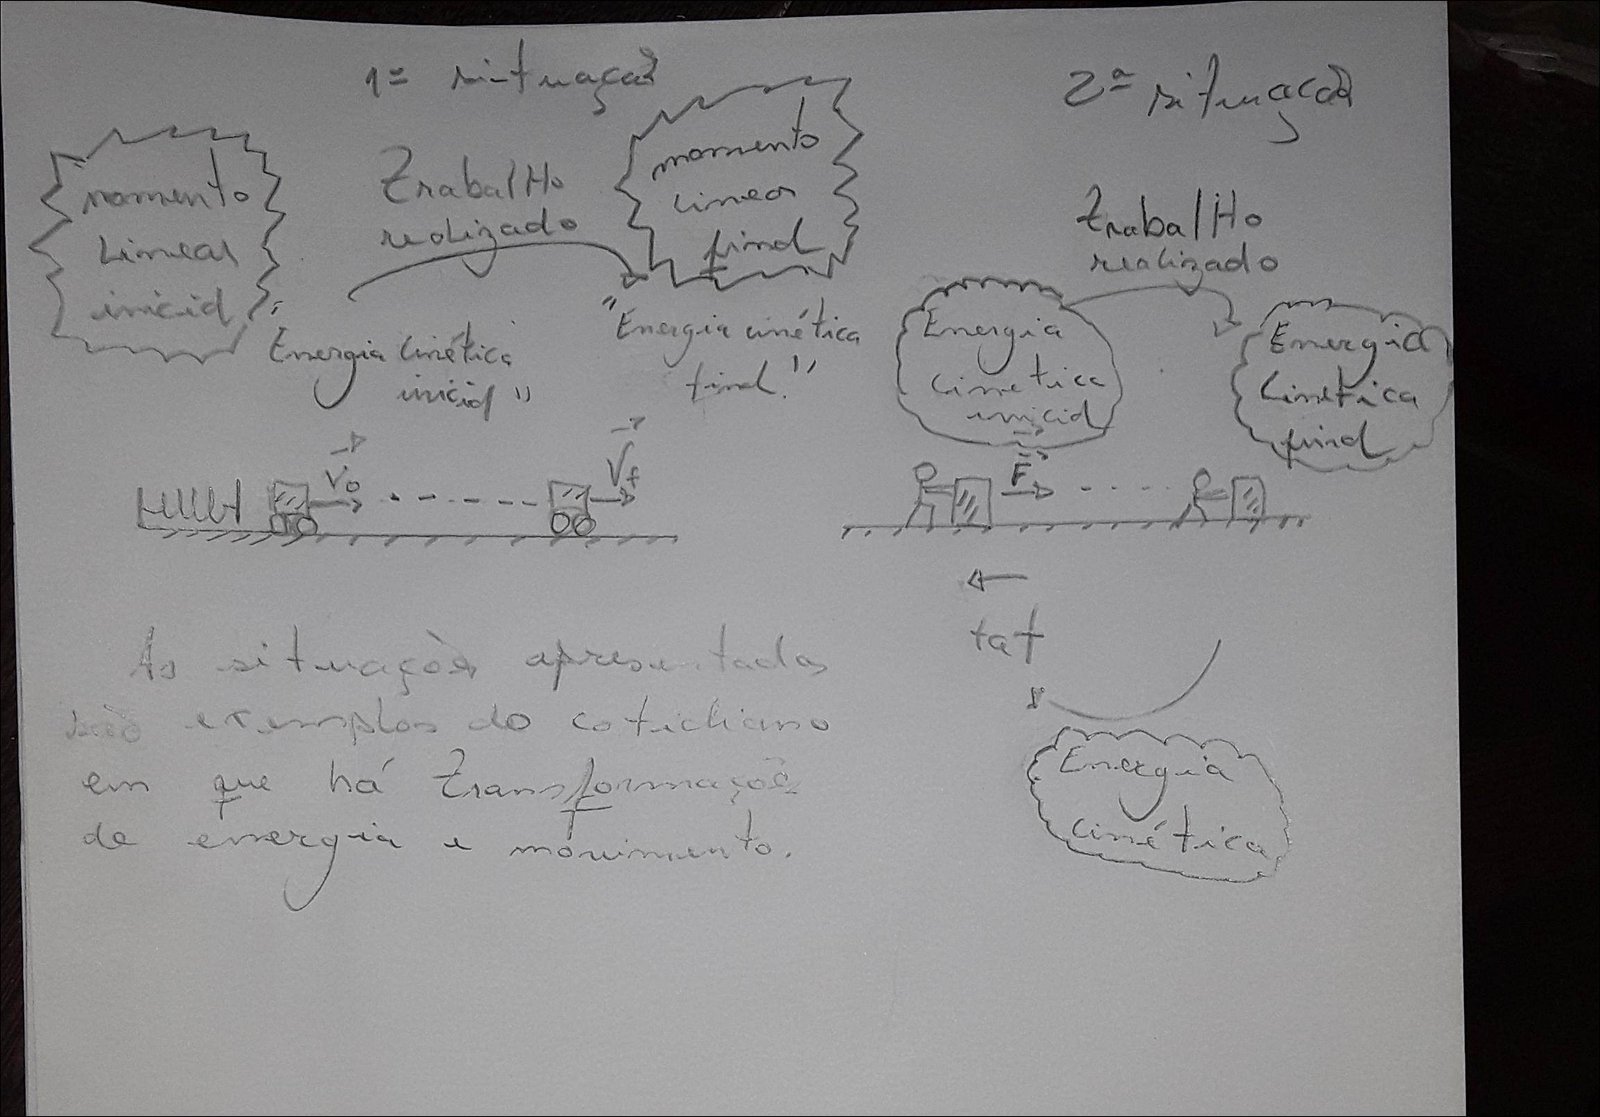 1ª situação
momento
Linear
inicial
Trabalho
realizado
momento
Linear
final
"Energia Cinética
inicial"
"Energia cinética
final."
V₀
Vf
2ª situação
TrabalHo
realizado
Energia
Cinetica
inicial
Energia
Cinética
final
F
fat
Energia
cinética
As situações apresentadas
são exemplos do cotidiano
em que há Transformações
de energia e movimento.